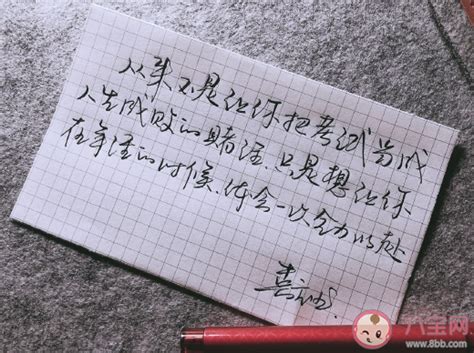 从来不是让你把考试当成
人生成败的赌注,只是想让你
在年轻的时候,体会一次全力以赴
八宝网
www.8bb.com